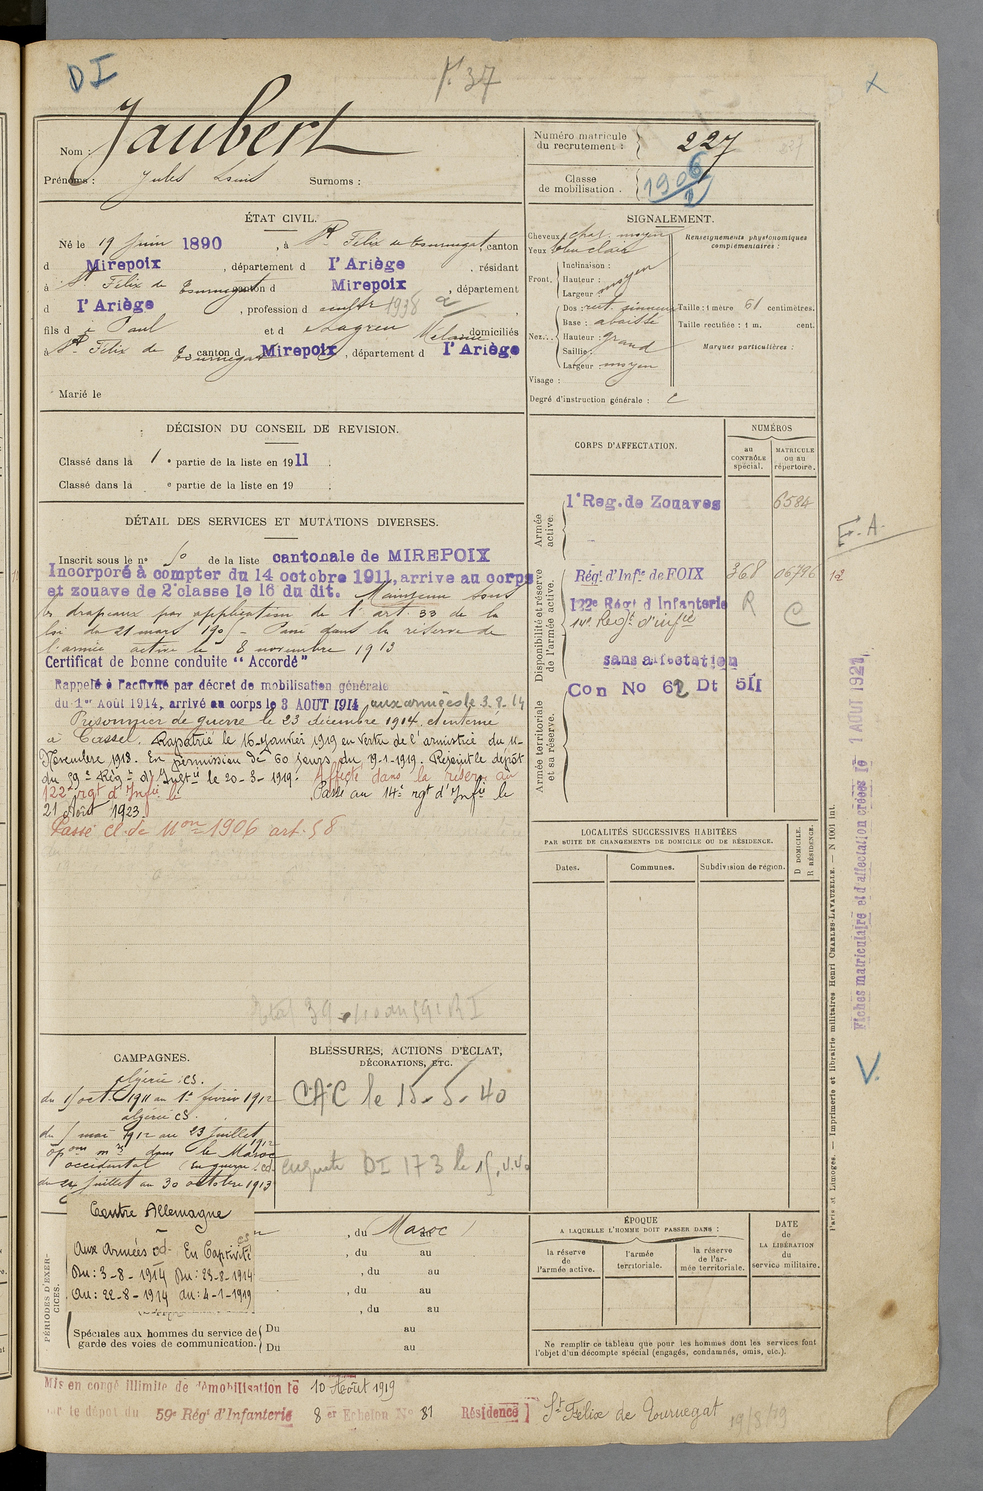 DI
P. 37
Nom : Jaubert
Prénoms : Jules Louis Surnoms :
Numéro matricule du recrutement : 227
Classe de mobilisation . 1906
ÉTAT CIVIL.
Né le 19 juin 1890 , à St Félix de Tournegat, canton
d Mirepoix , département d l'Ariège , résidant
à St Félix de Tournegat canton d Mirepoix , département
d l'Ariège , profession d cultr 1938
fils d e Paul et d e Lagreu Mélanie domiciliés
à St Félix de Tournegat canton d Mirepoix , département d l'Ariège
Marié le
SIGNALEMENT.
Cheveux chat. moyen
Yeux bleu clair
Front. Inclinaison :
Hauteur : moyen
Largeur
Nez. Dos : rect. sinueux
Base : abaissée
Hauteur : grand
Saillie :
Largeur moyen
Visage :
Degré d'instruction générale : C
Renseignements physionomiques complémentaires :
Taille : 1 mètre 61 centimètres.
Taille rectifiée : 1 m. cent.
Marques particulières :
DÉCISION DU CONSEIL DE REVISION.
Classé dans la 1 e partie de la liste en 1911
Classé dans la e partie de la liste en 19
DÉTAIL DES SERVICES ET MUTATIONS DIVERSES.
Inscrit sous le n° 50 de la liste cantonale de MIREPOIX
Incorporé à compter du 14 octobre 1911, arrive au corps
et zouave de 2e classe le 16 du dit. Maintenu sous
les drapeaux par application de l'art. 33 de la
loi du 21 mars 1905 - Passé dans la réserve de
l'armée active le 8 novembre 1913
Certificat de bonne conduite "Accordé"
Rappelé à l'activité par décret de mobilisation générale
du 1er Août 1914, arrivé au corps le 3 AOUT 1914, aux armées le 3.8.14
Prisonnier de guerre le 23 décembre 1914, et interné
à Cassel. Rapatrié le 16 Janvier 1919 en vertu de l'armistice du 11
Novembre 1918. En permission de 60 jours du 19-1-1919. Rejoint le dépôt
du 59e Rég.t d'Inf.ie le 20-3-1919. Affecté dans la réserve au
122e rgt d'Infie le Passé au 14e rgt d'Infie le
21 Août 1923.
Passé cl. de Mon 1906 art. 58
CORPS D'AFFECTATION.
NUMÉROS
au CONTRÔLE spécial.
MATRICULE ou au répertoire.
Armée active.
1er Reg. de Zouaves 6584
Disponibilité et réserve de l'armée active.
Régt d'Infie de FOIX 368 06796 12
F.A.
122e Régt d'Infanterie R C
14e Régt d'Infie
sans affectation
Con No 62 Dt 511
Armée territoriale et sa réserve.
LOCALITÉS SUCCESSIVES HABITÉES
PAR SUITE DE CHANGEMENTS DE DOMICILE OU DE RÉSIDENCE.
Dates. Communes. Subdivision de région. D DOMICILE. R RÉSIDENCE.
CAMPAGNES.
Algérie : CS.
du 15 oct. 1911 au 1er février 1912
Algérie CS.
du 5 mai 1912 au 23 juillet 1912
opons mres dans le Maroc
occidental (en guerre : cd.
du 24 juillet au 30 octobre 1913
BLESSURES, ACTIONS D'ÉCLAT,
DÉCORATIONS, ETC.
CAC le 15-5-40
enquete DI 173 le
Contre Allemagne
Aux Armées cd. En Captivité cs
Du : 3-8-1914 Du : 23-8-1914
Au : 22-8-1914 au : 4-1-1919
PÉRIODES D'EXERCICES.
, du Maroc au
, du au
, du au
, du au
, du au
Spéciales aux hommes du service de garde des voies de communication.
Du au
Du au
ÉPOQUE
A LAQUELLE L'HOMME DOIT PASSER DANS :
la réserve de l'armée active.
l'armée territoriale.
la réserve de l'armée territoriale.
DATE de LA LIBÉRATION du service militaire.
Ne remplir ce tableau que pour les hommes dont les services font
l'objet d'un décompte spécial (engagés, condamnés, omis, etc.).
Mis en congé illimité de démobilisation le 10 Août 1919
par le dépôt du 59e Régt d'Infanterie 8 er Echelon N° 81 Résidence St Félix de Tournegat 19/8/19
Paris et Limoges. — Imprimerie et librairie militaires Henri CHARLES-LAVAUZELLE. — N 1001 int.
Fiches matriculaire et d'affectation créées le 1 AOUT 1921
V.